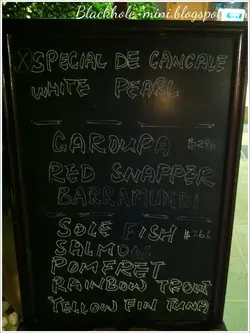 Blackhole-mini.blogspot
SPECIAL DE CANCALE
WHITE PEARL
GAROUPA
RED SNAPPER
BARRAMUNDI
SOLE FISH
SALMON
POMFRET
RAINBOW TROUT
YELLOW FIN TUNA